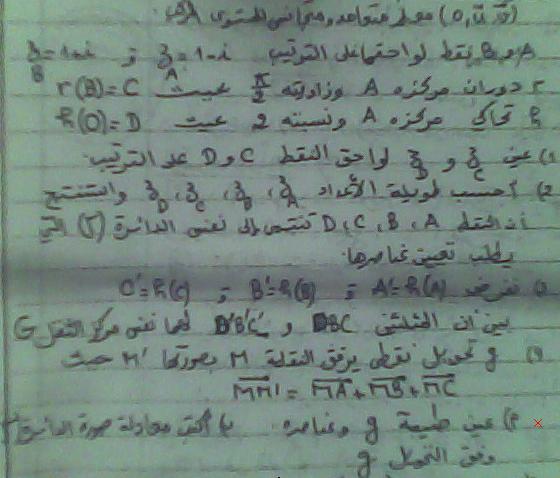 (O, u, v) معلم متعامد ومتجانس للمستوى المركب
A و B نقط لواحقها على الترتيب z_A = 1-i و z_B =
r دوران مركزه A وزاويته π/2 بحيث r(B)=C
h تحاكي مركزه A ونسبته 2 حيث h(O)=D
1) عين z_C و z_D لواحق النقط C و D على الترتيب.
2) احسب طويلة الأعداد z_A، z_B، z_C، z_D واستنتج
أن النقط A، B، C، D تنتمي إلى نفس الدائرة (Γ) التي
يطلب تعيين عناصرها.
نفرض A'=h(A) و B'=h(B) و C'=h(C)
بين أن المثلثين BC و B'C' لهما نفس مركز الثقل G
g تحويل نقطي يرفق النقطة M بصورتها M' حيث
MM' = MA + MB + MC
عين طبيعة g وعناصره ب) أكتب معادلة صورة الدائرة
وفق التحويل g